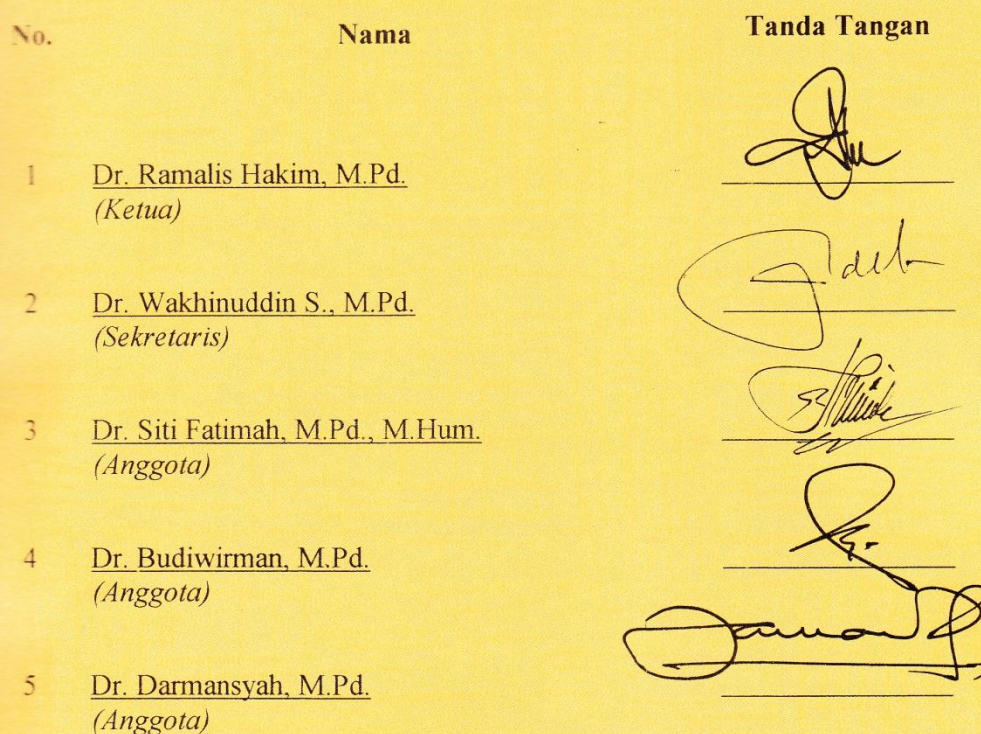 No. Nama Tanda Tangan
1 Dr. Ramalis Hakim, M.Pd.
(Ketua)
2 Dr. Wakhinuddin S., M.Pd.
(Sekretaris)
3 Dr. Siti Fatimah, M.Pd., M.Hum.
(Anggota)
4 Dr. Budiwirman, M.Pd.
(Anggota)
5 Dr. Darmansyah, M.Pd.
(Anggota)